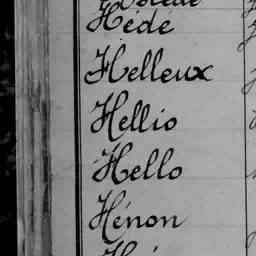 Hédé
Helleux
Hellio
Hello
Hénon